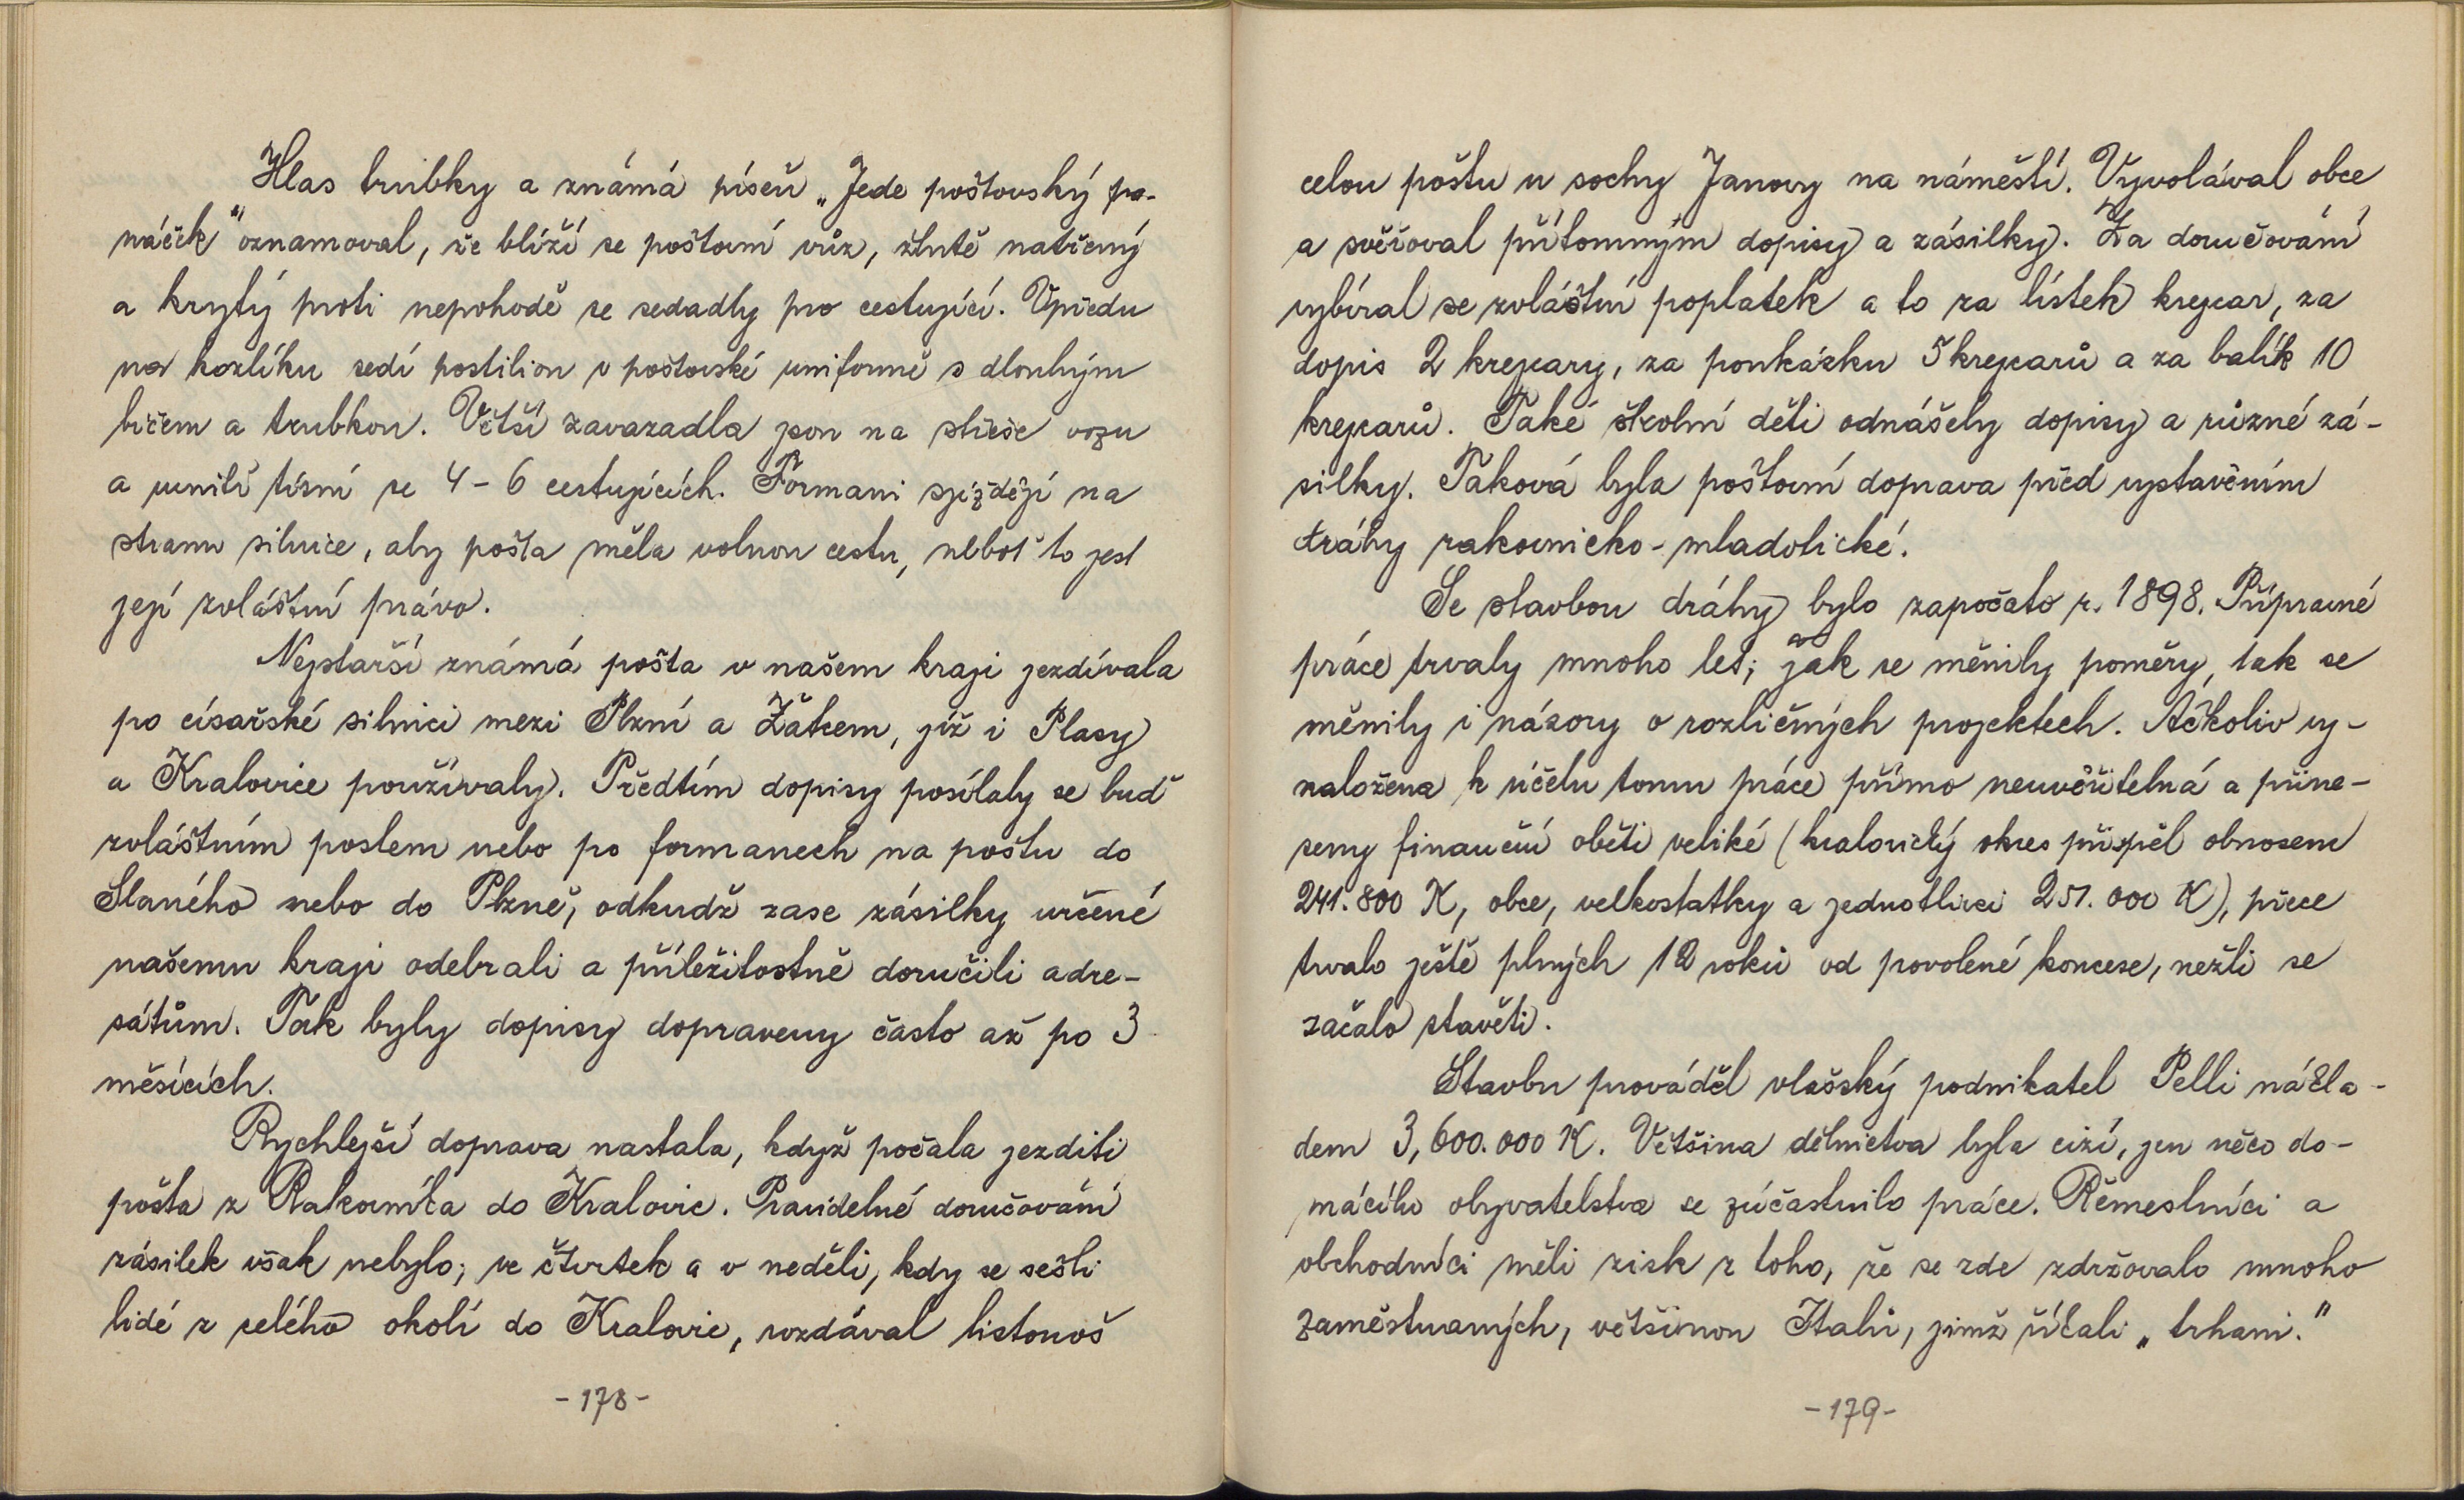 Hlas trubky a známá píseň „Jede poštovský pa-
náček" oznamoval, že blíží se poštovní vůz, žlutě natřený
a krytý proti nepohodě se sedadly pro cestující. Vpředu
na kozlíku sedí postilion v poštovské uniformě s dlouhým
bičem a trubkou. Větší zavazadla jsou na střeše vozu
a uvnitř tísní se 4-6 cestujících. Formani sjíždějí na
stranu silnice, aby pošta měla volnou cestu, neboť to jest
její zvláštní právo.
Nejstarší známá pošta v našem kraji jezdívala
po císařské silnici mezi Plzní a Žatcem, jíž i Plasy
a Kralovice používaly. Předtím dopisy posílaly se buď
zvláštním poslem nebo po formanech na poštu do
Slaného nebo do Plzně, odkudž zase zásilky určené
našemu kraji odebrali a příležitostně doručili adre-
sátům. Tak byly dopisy dopraveny často až po 3
měsících.
Rychlejší doprava nastala, když počala jezditi
pošta z Rakovníka do Kralovic. Pravidelné doručování
zásilek však nebylo; ve čtvrtek a v neděli, kdy se sešli
lidé z celého okolí do Kralovic, rozdával listonoš
-178-
celou poštu u sochy Janovy na náměstí. Vyvolával obce
a svěřoval přítomným dopisy a zásilky. Za doručování
vybíral se zvláštní poplatek a to za lístek krejcar, za
dopis 2 krejcary, za poukázku 5 krejcarů a za balík 10
krejcarů. Také školní děti odnášely dopisy a různé zá-
silky. Taková byla poštovní doprava před vystavěním
dráhy rakovnicko-mladotické.
Se stavbou dráhy bylo započato r. 1898. Přípravné
práce trvaly mnoho let; jak se měnily poměry, tak se
měnily i názory o rozličných projektech. Ačkoliv vy-
naložena k účelu tomu práce přímo neuvěřitelná a přine-
seny finanční oběti veliké (kralovický okres přispěl obnosem
241.800 K, obce, velkostatky a jednotlivci 251.000 K), přece
trvalo ještě plných 12 roků od povolené koncese, nežli se
začalo stavěti.
Stavbu prováděl vlašský podnikatel Pelli nákla-
dem 3,600.000 K. Většina dělnictva byla cizí, jen něco do-
mácího obyvatelstva se zúčastnilo práce. Řemeslníci a
obchodníci měli zisk z toho, že se zde zdržovalo mnoho
zaměstnaných, většinou Italů, jimž říkali „trhani."
-179-